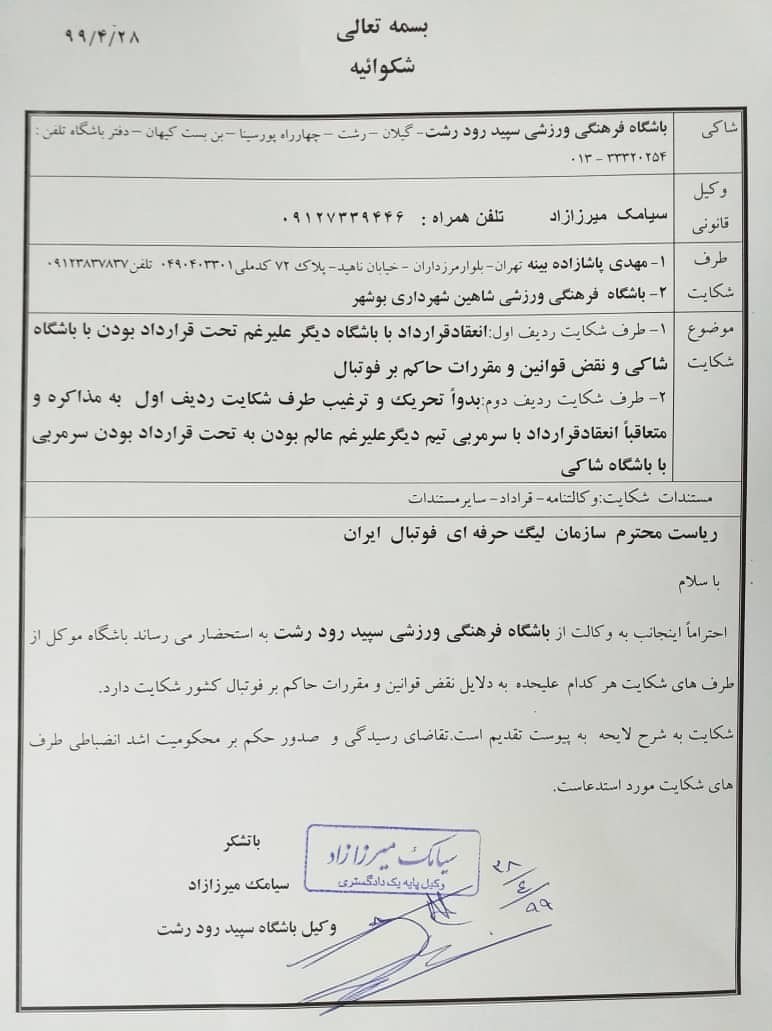 بسمه تعالی
۹۹/۴/۲۸
شکوائیه
شاکی
باشگاه فرهنگی ورزشی سپید رود رشت- گیلان – رشت – چهارراه پورسینا – بن بست کیهان – دفتر باشگاه تلفن :
۳۳۳۲۰۲۵۴ - ۰۱۳
وکیل
قانونی
سیامک میرزازاد تلفن همراه : ۰۹۱۲۷۳۳۹۴۴۶
طرف
شکایت
۱- مهدی پاشازاده بینه تهران- بلوارمرزداران - خیابان ناهید- پلاک ۷۲ کدملی۰۴۹۰۴۰۳۳۰۱ تلفن۰۹۱۲۳۸۳۷۸۳۷
۲- باشگاه فرهنگی ورزشی شاهین شهرداری بوشهر
موضوع
شکایت
۱- طرف شکایت ردیف اول:انعقادقرارداد با باشگاه دیگر علیرغم تحت قرارداد بودن با باشگاه
شاکی و نقض قوانین و مقررات حاکم بر فوتبال
۲- طرف شکایت ردیف دوم:بدواً تحریک و ترغیب طرف شکایت ردیف اول به مذاکره و
متعاقباً انعقادقرارداد با سرمربی تیم دیگرعلیرغم عالم بودن به تحت قرارداد بودن سرمربی
با باشگاه شاکی
مستندات شکایت:وکالتنامه- قراداد- سایرمستندات
ریاست محترم سازمان لیگ حرفه ای فوتبال ایران
با سلام
احتراماً اینجانب به وکالت از باشگاه فرهنگی ورزشی سپید رود رشت به استحضار می رساند باشگاه موکل از
طرف های شکایت هر کدام علیحده به دلایل نقض قوانین و مقررات حاکم بر فوتبال کشور شکایت دارد.
شکایت به شرح لایحه به پیوست تقدیم است.تقاضای رسیدگی و صدور حکم بر محکومیت اشد انضباطی طرف
های شکایت مورد استدعاست.
باتشکر
سیامک میرزازاد
وکیل باشگاه سپید رود رشت
سیامک میرزازاد
وکیل پایه یک دادگستری
۹۹/۴/۲۸